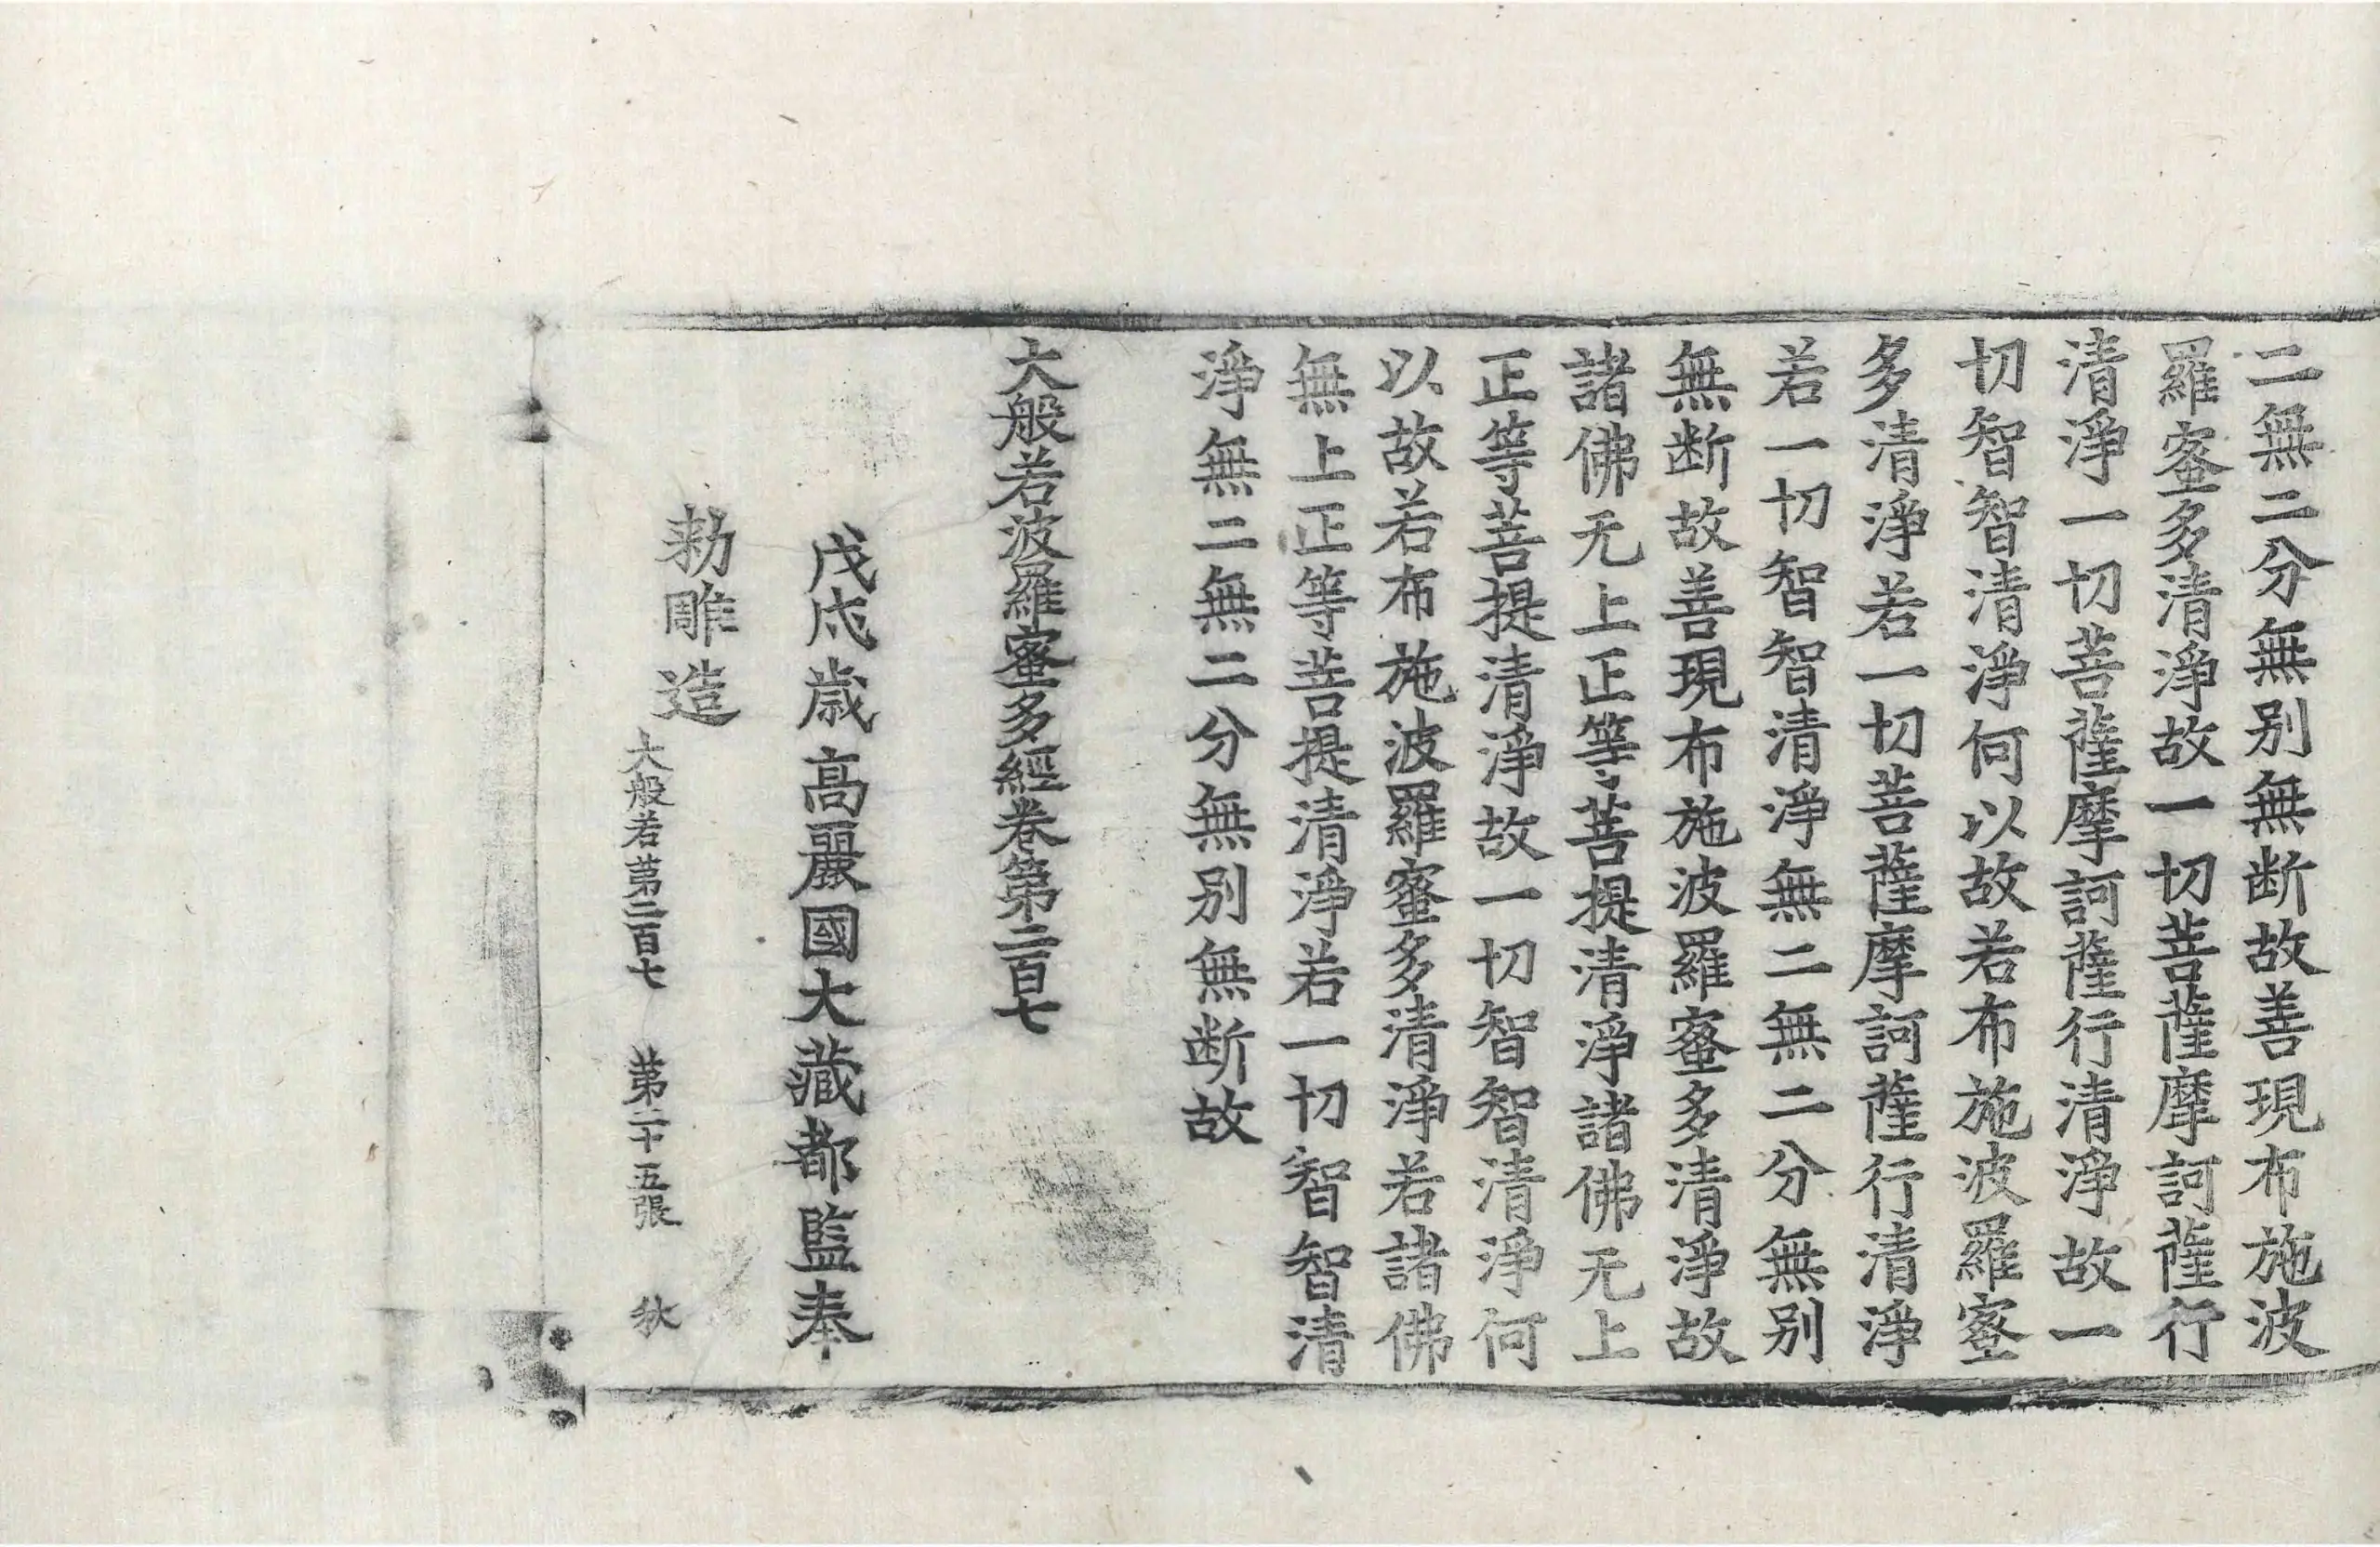 二無二分無别無断故善現布施波
羅蜜多清淨故一切菩薩摩訶薩行
清淨一切菩薩摩訶薩行清淨故一
切智智清淨何以故若布施波羅蜜
多清淨若一切菩薩摩訶薩行清淨
若一切智智清淨無二無二分無别
無断故善現布施波羅蜜多清淨故
諸佛无上正等菩提清淨諸佛无上
正等菩提清淨故一切智智清淨何
以故若布施波羅蜜多清淨若諸佛
無上正等菩提清淨若一切智智清
淨無二無二分無别無断故
大般若波羅蜜多經卷第二百七
戊戌歳高麗國大藏都監奉
勑雕造
大般若第二百七 第二十五張 秋